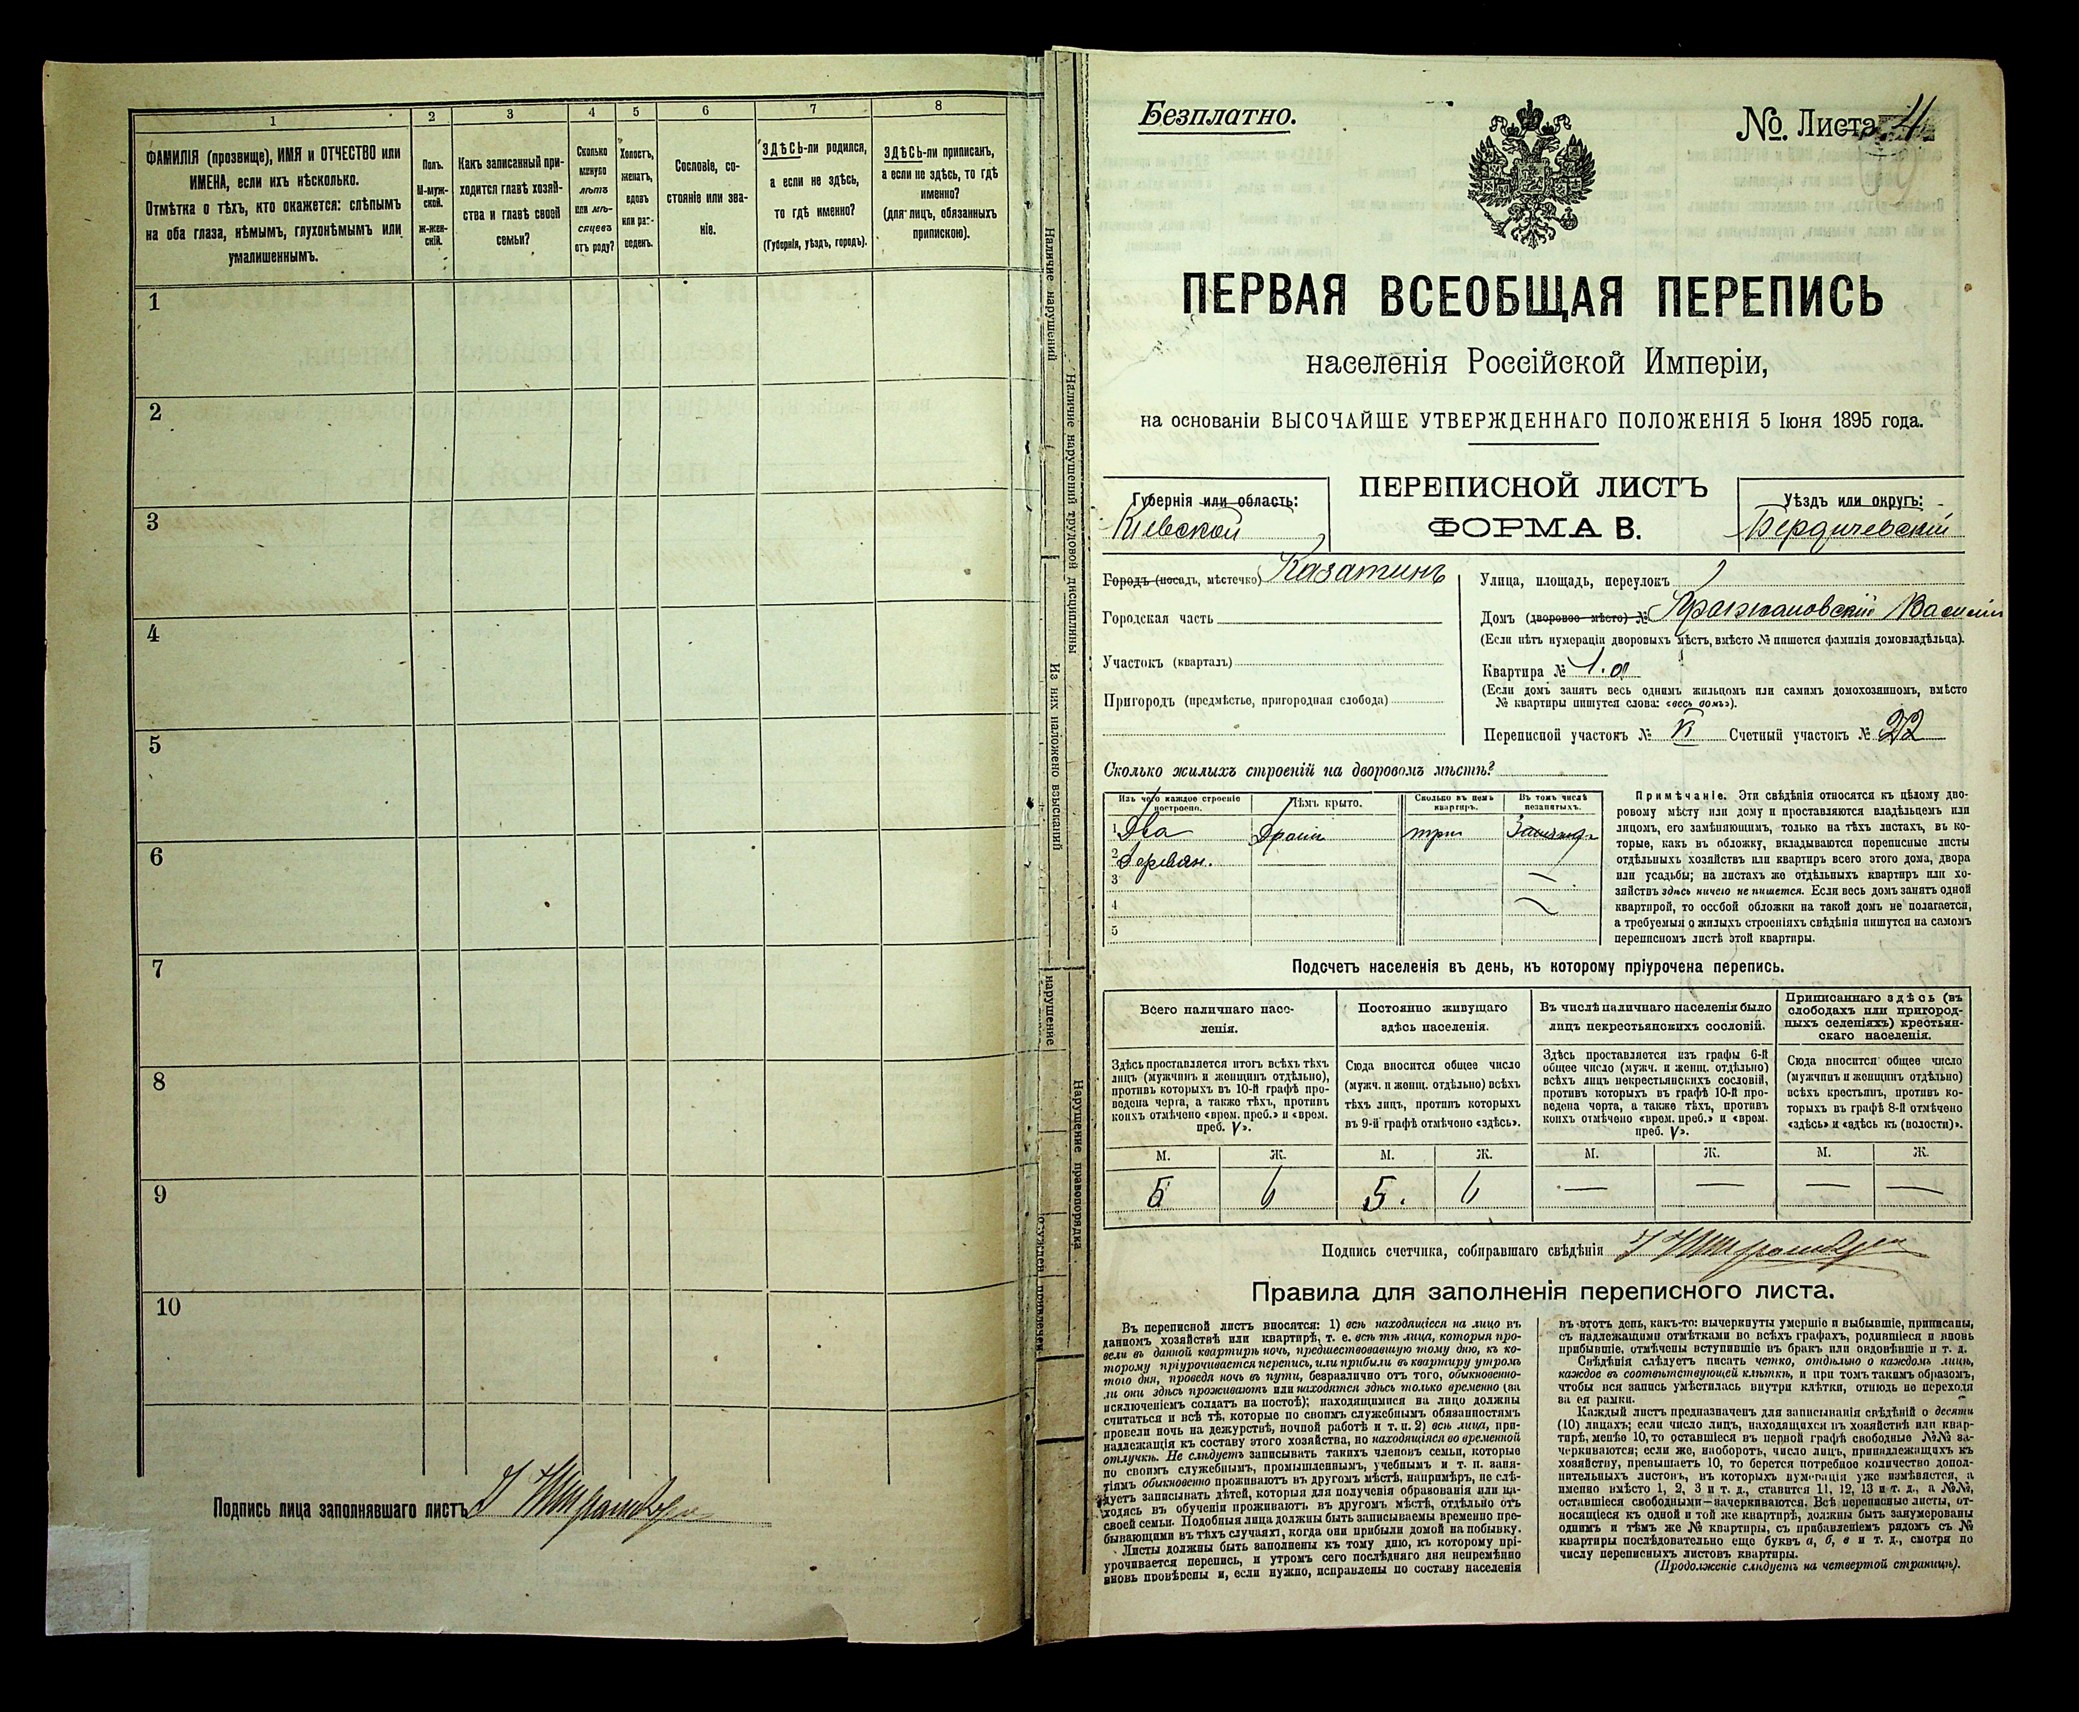 1
2
3
4
5
6
7
8
ФАМИЛІЯ (прозвище), ИМЯ и ОТЧЕСТВО или
ИМЕНА, если ихъ нѣсколько.
Отмѣтка о тѣхъ, кто окажется: слѣпымъ
на оба глаза, нѣмымъ, глухонѣмымъ или
умалишеннымъ.
Полъ.
М-муж-
ской.
ж-жен-
скій.
Какъ записанный при-
ходится главѣ хозяй-
ства и главѣ своей
семьи?
Сколько
минуло
лѣтъ
или мѣ-
сяцевъ
отъ роду?
Холостъ,
женатъ,
вдовъ
или раз-
веденъ.
Сословіе, со-
стояніе или зва-
ніе.
ЗДѢСЬ-ли родился,
а если не здѣсь,
то гдѣ именно?
(Губернія, уѣздъ, городъ).
ЗДѢСЬ-ли приписанъ,
а если не здѣсь, то гдѣ
именно?
(для лицъ, обязанныхъ
припискою).
1
2
3
4
5
6
7
8
9
10
Подпись лица заполнявшаго листъ
Наличие нарушений
Из них наложено взысканий
нарушение
Наличие нарушений трудовой дисциплины
Нарушение правопорядка
Безплатно.
№. Листа 4
ПЕРВАЯ ВСЕОБЩАЯ ПЕРЕПИСЬ
населенія Россійской Имперіи,
на основаніи ВЫСОЧАЙШЕ УТВЕРЖДЕННАГО ПОЛОЖЕНІЯ 5 Іюня 1895 года.
Губернія или область:
Кіевской
ПЕРЕПИСНОЙ ЛИСТЪ
ФОРМА В.
Уѣздъ или округъ:
Бердичевскій
Городъ (посадъ, мѣстечко) Казатинъ
Городская часть
Участокъ (кварталъ)
Пригородъ (предмѣстье, пригородная слобода)
Улица, площадь, переулокъ
Домъ (дворовое мѣсто) №
(Если нѣтъ нумераціи дворовыхъ мѣстъ, вмѣсто № пишется фамилія домовладѣльца).
Квартира № 1. а
(Если домъ занятъ весь однимъ жильцомъ или самимъ домохозяиномъ, вмѣсто
№ квартиры пишутся слова: «весь домъ»).
Переписной участокъ № Счетный участокъ № 22
Сколько жилыхъ строеній на дворовомъ мѣстѣ?
Изъ чего каждое строеніе
построено.
Чѣмъ крыто.
Сколько въ немъ
квартиръ.
Въ томъ числѣ
незанятыхъ.
1 Два
три
2 Деревян.
3 —
4
5
Примѣчаніе. Эти свѣдѣнія относятся къ цѣлому дво-
ровому мѣсту или дому и проставляются владѣльцемъ или
лицомъ, его замѣняющимъ, только на тѣхъ листахъ, въ ко-
торые, какъ въ обложку, вкладываются переписные листы
отдѣльныхъ хозяйствъ или квартиръ всего этого дома, двора
или усадьбы; на листахъ же отдѣльныхъ квартиръ или хо-
зяйствъ здѣсь ничего не пишется. Если весь домъ занятъ одной
квартирой, то особой обложки на такой домъ не полагается,
а требуемыя о жилыхъ строеніяхъ свѣдѣнія пишутся на самомъ
переписномъ листѣ этой квартиры.
Подсчетъ населенія въ день, къ которому пріурочена перепись.
Всего наличнаго насе-
ленія.
Здѣсь проставляется итогъ всѣхъ тѣхъ
лицъ (мужчинъ и женщинъ отдѣльно),
противъ которыхъ въ 10-й графѣ про-
ведена черта, а также тѣхъ, противъ
коихъ отмѣчено «врем. преб.» и «врем.
преб. V».
Постоянно живущаго
здѣсь населенія.
Сюда вносится общее число
(мужч. и женщ. отдѣльно) всѣхъ
тѣхъ лицъ, противъ которыхъ
въ 9-й графѣ отмѣчено «здѣсь».
Въ числѣ наличнаго населенія было
лицъ некрестьянскихъ сословій.
Здѣсь проставляется изъ графы 6-й
общее число (мужч. и женщ. отдѣльно)
всѣхъ лицъ некрестьянскихъ сословій,
противъ которыхъ въ графѣ 10-й про-
ведена черта, а также тѣхъ, противъ
коихъ отмѣчено «врем. преб.» и «врем.
преб. V».
Приписаннаго здѣсь (въ
слободахъ или пригород-
ныхъ селеніяхъ) крестьян-
скаго населенія.
Сюда вносится общее число
(мужчинъ и женщинъ отдѣльно)
всѣхъ крестьянъ, противъ ко-
торыхъ въ графѣ 8-й отмѣчено
«здѣсь» и «здѣсь къ (волости)».
М. Ж. М. Ж. М. Ж. М. Ж.
5 6 5. 6 — — — —
Подпись счетчика, собиравшаго свѣдѣнія
Правила для заполненія переписного листа.
Въ переписной листъ вносятся: 1) всѣ находящіеся на лицо въ
данномъ хозяйствѣ или квартирѣ, т. е. всѣ тѣ лица, которыя про-
вели въ данной квартирѣ ночь, предшествовавшую тому дню, къ ко-
торому пріурочивается перепись, или прибыли въ квартиру утромъ
того дня, проведя ночь въ пути, безразлично отъ того, обыкновенно-
ли они здѣсь проживаютъ или находятся здѣсь только временно (за
исключеніемъ солдатъ на постоѣ); находящимися на лицо должны
считаться и всѣ тѣ, которые по своимъ служебнымъ обязанностямъ
провели ночь на дежурствѣ, ночной работѣ и т. п. 2) всѣ лица, при-
надлежащія къ составу этого хозяйства, но находящіяся во временной
отлучкѣ. Не слѣдуетъ записывать такихъ членовъ семьи, которые
по своимъ служебнымъ, промышленнымъ, учебнымъ и т. п. заня-
тіямъ обыкновенно проживаютъ въ другомъ мѣстѣ, напримѣръ, не слѣ-
дуетъ записывать дѣтей, которыя для полученія образованія или на-
ходясь въ обученіи проживаютъ въ другомъ мѣстѣ, отдѣльно отъ
своей семьи. Подобныя лица должны быть записываемы временно пре-
бывающими въ тѣхъ случаяхъ, когда они прибыли домой на побывку.
Листы должны быть заполнены къ тому дню, къ которому прі-
урочивается перепись, и утромъ сего послѣдняго дня непремѣнно
вновь провѣрены и, если нужно, исправлены по составу населенія
въ этотъ день, какъ-то: вычеркнуты умершіе и выбывшіе, приписаны,
съ надлежащими отмѣтками во всѣхъ графахъ, родившіеся и вновь
прибывшіе, отмѣчены вступившіе въ бракъ или овдовѣвшіе и т. д.
Свѣдѣнія слѣдуетъ писать четко, отдѣльно о каждомъ лицѣ,
каждое въ соотвѣтствующей клѣткѣ, и при томъ такимъ образомъ,
чтобы вся запись умѣстилась внутри клѣтки, отнюдь не переходя
за ея рамки.
Каждый листъ предназначенъ для записыванія свѣдѣній о десяти
(10) лицахъ; если число лицъ, находящихся въ хозяйствѣ или квар-
тирѣ, менѣе 10, то оставшіеся въ первой графѣ свободные №№ за-
черкиваются; если же, наоборотъ, число лицъ, принадлежащихъ къ
хозяйству, превышаетъ 10, то берется потребное количество допол-
нительныхъ листовъ, въ которыхъ нумерація уже измѣняется, а
именно вмѣсто 1, 2, 3 и т. д., ставится 11, 12, 13 и т. д., а №№,
оставшіеся свободными—зачеркиваются. Всѣ переписные листы, от-
носящіеся къ одной и той же квартирѣ, должны быть занумерованы
однимъ и тѣмъ же № квартиры, съ прибавленіемъ рядомъ съ №
квартиры послѣдовательно еще буквъ а, б, в и т. д., смотря по
числу переписныхъ листовъ квартиры.
(Продолженіе слѣдуетъ на четвертой страницѣ).